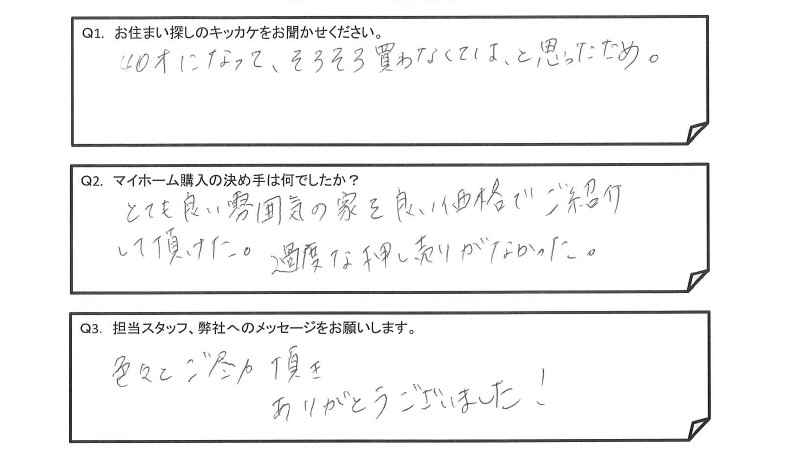 Q1. お住まい探しのキッカケをお聞かせください。
40才になって、そろそろ買わなくては、と思ったため。
Q2. マイホーム購入の決め手は何でしたか？
とても良い雰囲気の家を良い価格でご紹介
して頂けた。過度な押し売りがなかった。
Q3. 担当スタッフ、弊社へのメッセージをお願いします。
色々とご尽力頂き
ありがとうございました！